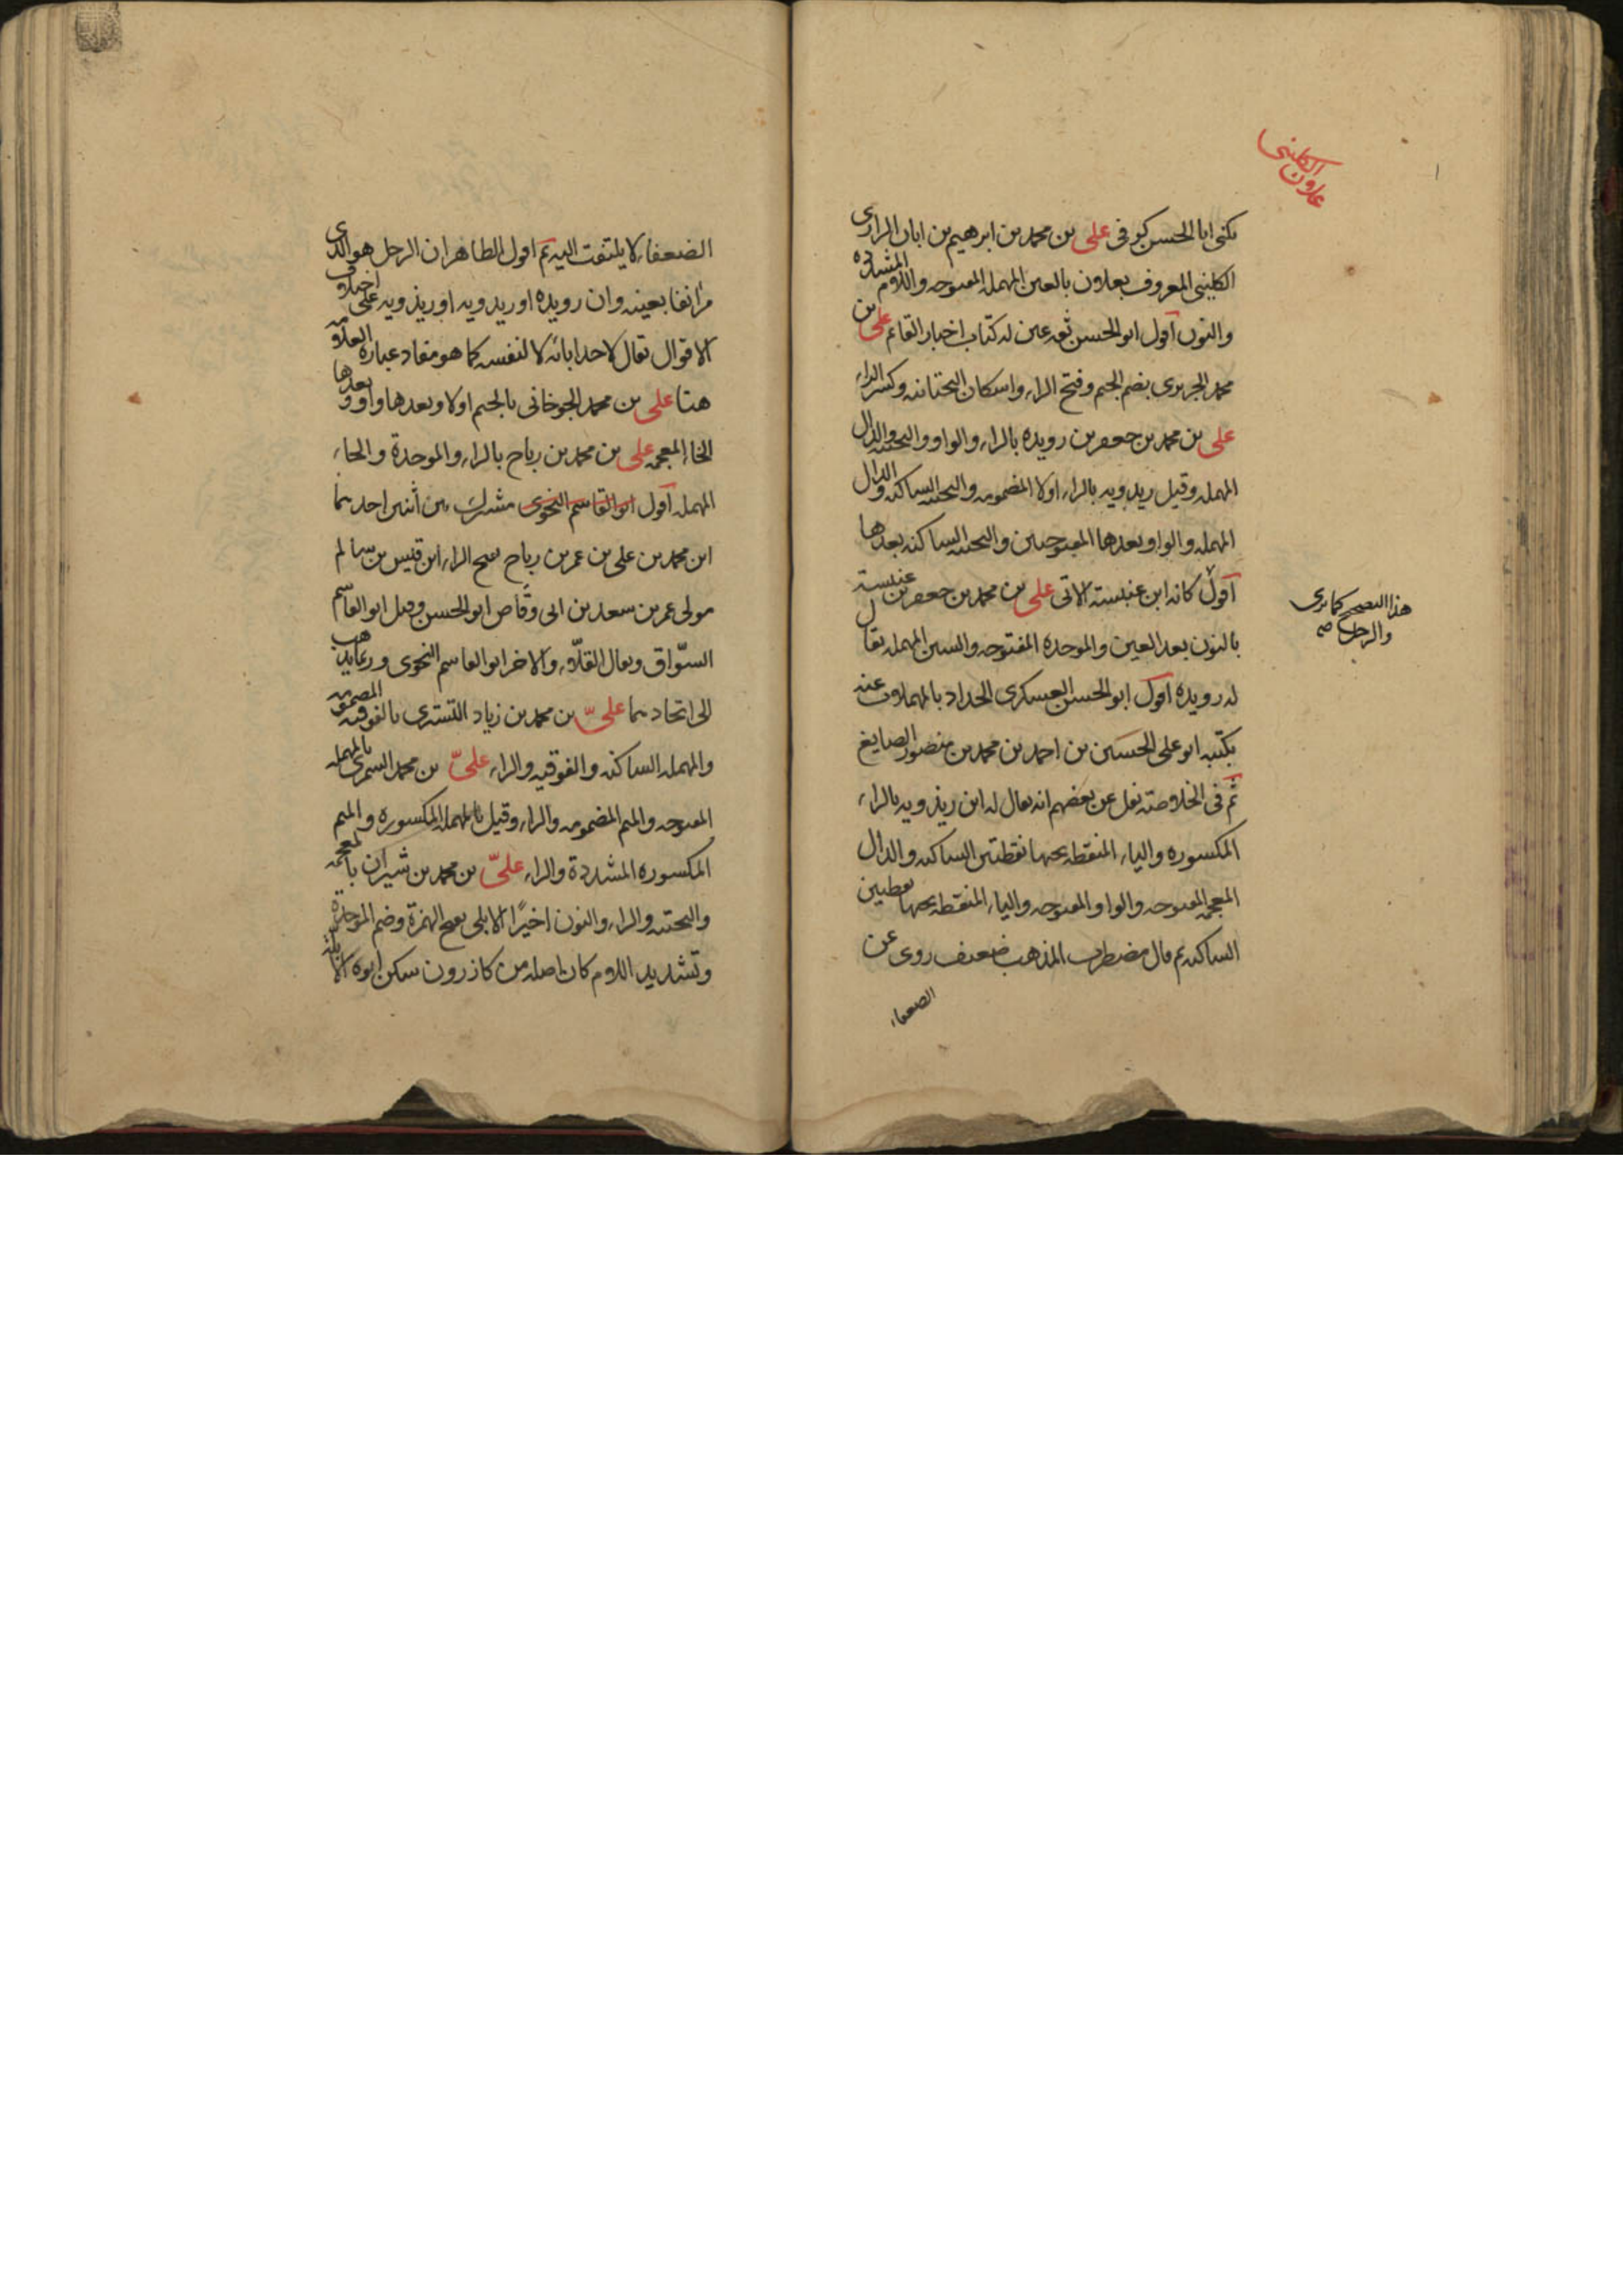 علان الكليني
يكنى ابا الحسن كوفى على بن محمد بن ابرهيم بن ابان الرازى
الكلينى المعروف بعلان بالعين المهمله المفتوحه واللام المشدده
والنون اقول ابو الحسن ثقه عين له كتاب اخبار القائم على بن
محمد الجريرى بضم الجيم وفتح الراء واسكان التحتانيه وكسر الراء
على بن محمد بن جعفر بن رويده بالراء والواو والتحتيه والدال
المهمله وقيل ريدويه بالراء اولا المضمومه والتحتيه الساكنه والدال
المهمله والواو بعدها المفتوحتين والتحتيه الساكنه بعدها
اقول كانه ابن عنبسته الاتى على بن محمد بن جعفر بن عنبسته
بالنون بعد العين والموحده المفتوحه والسين المهمله يقال
له رويده اقول ابو الحسن العسكرى الحداد بالمهملات عنه
بكتبه ابو على الحسين بن احمد بن محمد بن منصور الصايغ
ثم فى الخلاصته نقل عن بعضهم انه يقال له ابن ريذويه بالراء
المكسوره والياء المنقطه تحتها نقطتين الساكنه والذال
المعجمه المفتوحه والواو المفتوحه والياء المنقطه تحتها نقطتين
الساكنه ثم قال مضطرب المذهب ضعيف روى عن
الضعفاء
هذا الصحيح كما ترى
والرجل
الضعفاء لا يلتفت اليه ثم اقول الظاهر ان الرجل هو الذى
مر انفا بعينه وان رويده او ريدويه او ريذويه على اختلاف
الاقوال تقال لاحد ابائه لا لنفسه كما هو مفاد عباره العلامه
هنا على بن محمد الجوخانى بالجيم اولا وبعدها واو وبعدها
الخاء المعجمه على بن محمد بن رباح بالراء والموحدة والحاء
المهمله اقول ابو القاسم النحوى مشترك بين اثنين احدهما
ابن محمد بن على بن عمر بن رباح بفتح الراء ابن قيس بن سالم
مولى عمر بن سعد بن ابى وقاص ابو الحسن وقيل ابو القاسم
السواق ويقال القلاء والاخر ابو القاسم النحوى وربما يذهب
الى اتحادهما على بن محمد بن زياد التسترى بالفوقيه المضمومه
والمهمله الساكنه والفوقيه والراء على بن محمد السمرى بالمهمله
المفتوحه والميم المضمومه والراء وقيل بالمهمله المكسوره والميم
المكسوره المشددة والراء على بن محمد بن شيران بالمعجمه
والتحتيه والراء والنون اخيرًا الابلى بفتح الهمزة وضم الموحدة
وتشديد اللام كان اصله من كازرون سكن ابوه الابله